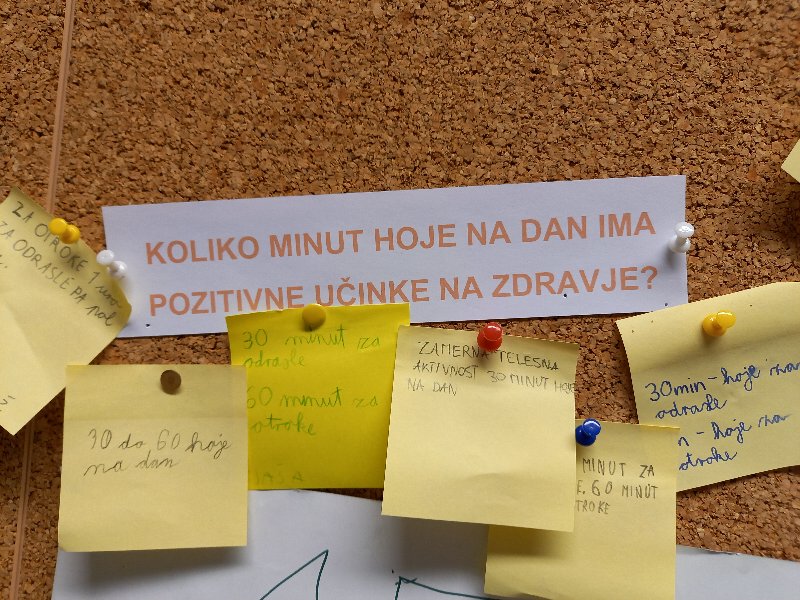 KOLIKO MINUT HOJE NA DAN IMA
POZITIVNE UČINKE NA ZDRAVJE?
ZA OTROKE 1 uro
ZA ODRASLE PA pol
30 do 60 hoje
na dan
30 minut za
odrasle
60 minut za
otroke
ZAMERNA TELESNA
AKTIVNOST 30 MINUT HOJE
NA DAN
MINUT ZA
60 MINUT
TROKE
30min - hoje na
odrasle
n - hoje na
otroke